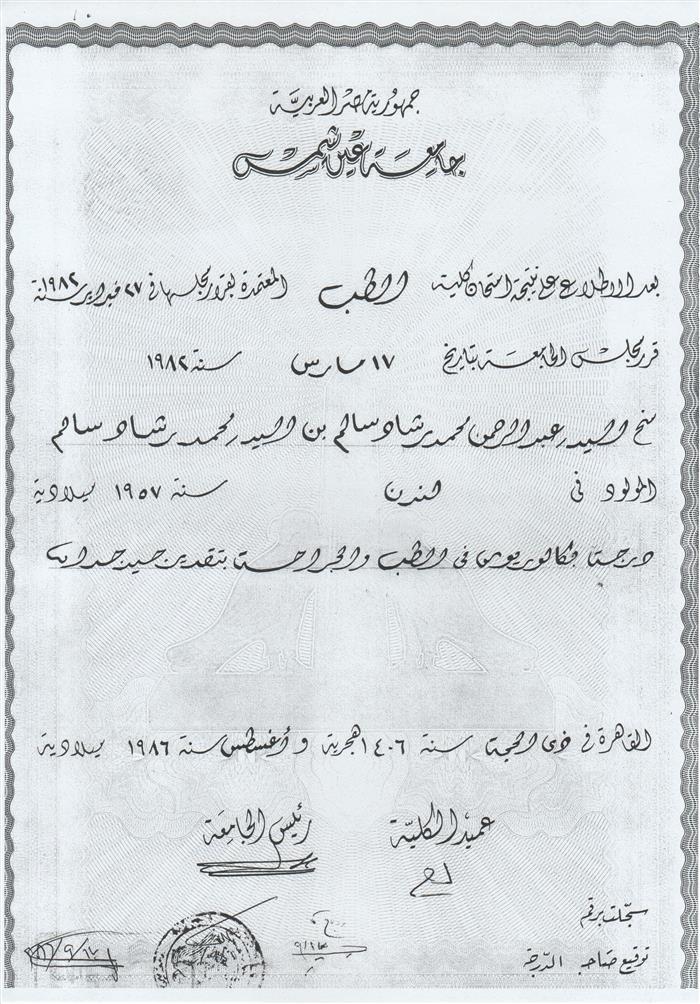 جمهورية مصر العربية
جامعة عين شمس
بعد الاطلاع على نتيجة امتحان كلية الطب المعتمدة بقرار مجلسها في ٢٧ فبراير سنة ١٩٨٢
قرر مجلس الجامعة بتاريخ ١٧ مارس سنة ١٩٨٢
منح السيد عبد الرحمن محمد رشاد سالم بن السيد محمد رشاد سالم
المولود في لندن سنة ١٩٥٧ ميلادية
درجتا بكالوريوس في الطب والجراحة بتقدير جيد جدا
القاهرة في ذي الحجة سنة ١٤٠٦ هجرية و أغسطس سنة ١٩٨٦ ميلادية
عميد الكلية رئيس الجامعة
سجلت برقم
توقيع صاحب الدرجة